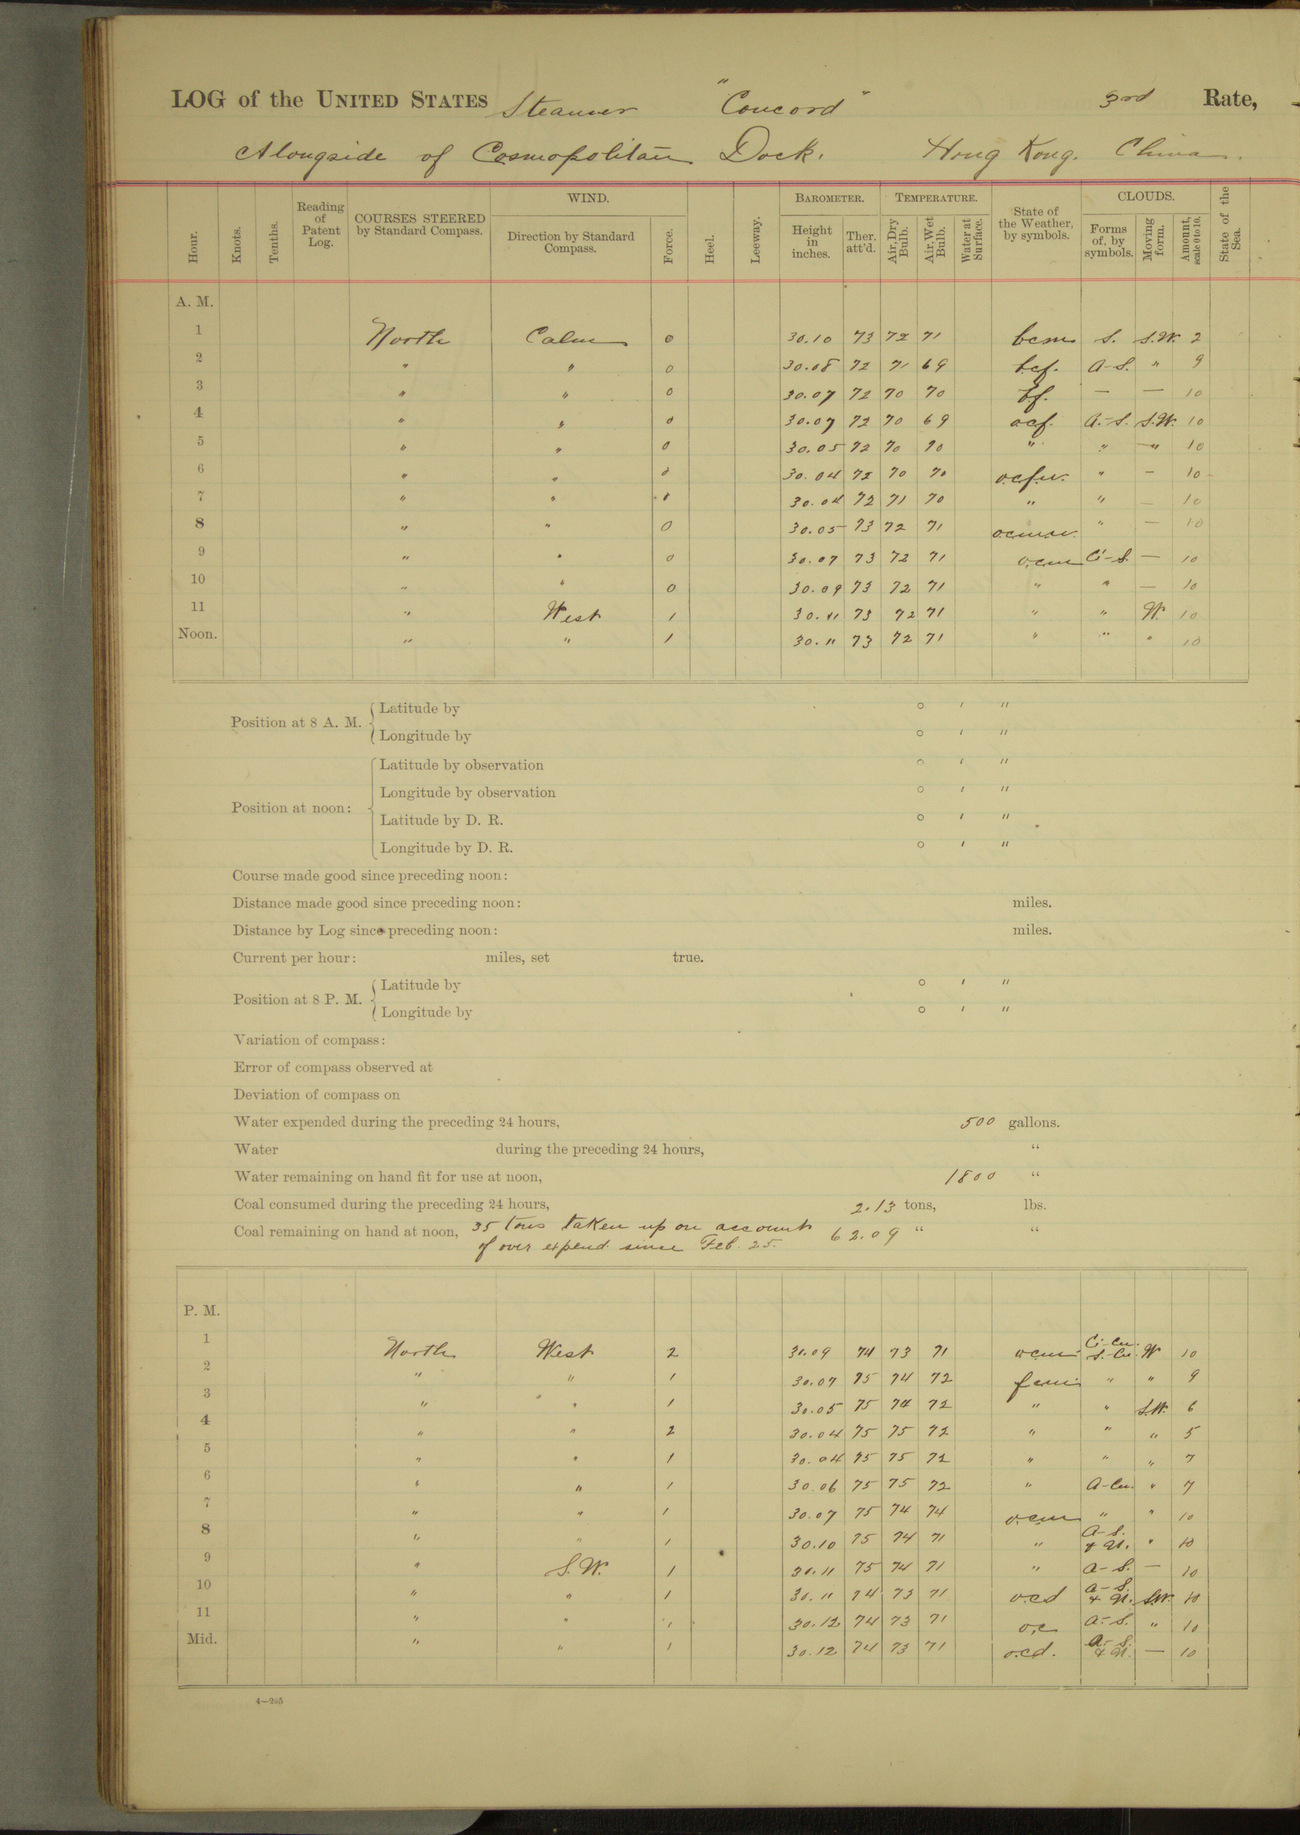 LOG of the UNITED STATES Steamer "Concord" 3rd Rate,
Alongside of Cosmopolitan Dock. Hong Kong. China.
Hour. Knots. Tenths. Reading of Patent Log. COURSES STEERED by Standard Compass. WIND. Direction by Standard Compass. Force. Heel. Leeway. BAROMETER. Height in inches. Ther. att'd. TEMPERATURE. Air, Dry Bulb. Air, Wet Bulb. Water at Surface. State of the Weather, by symbols. CLOUDS. Forms of, by symbols. Moving form. Amount, scale 0 to 10. State of the Sea.
A. M.
1 North Calm 0 30.10 73 72 71 bcm S. S.W. 2
2 " " 0 30.08 72 71 69 bcf. A-S. " 9
3 " " 0 30.07 72 70 70 bf. — — 10
4 " " 0 30.07 72 70 69 ocf. A-S. S.W. 10
5 " " 0 30.05 72 70 70 " " —" 10
6 " " 0 30.04 72 70 70 o.c.f.w. " — 10
7 " " 0 30.04 72 71 70 " " — 10
8 " " 0 30.05 73 72 71 o.c.m.w. " — 10
9 " " 0 30.07 73 72 71 o.cm C-S. — 10
10 " " 0 30.09 73 72 71 " " — 10
11 " West 1 30.11 73 72 71 " " W. 10
Noon. " " 1 30.11 73 72 71 " " " 10
Position at 8 A. M. Latitude by ° ' "
Longitude by ° ' "
Position at noon: Latitude by observation ° ' "
Longitude by observation ° ' "
Latitude by D. R. ° ' "
Longitude by D. R. ° ' "
Course made good since preceding noon:
Distance made good since preceding noon: miles.
Distance by Log since preceding noon: miles.
Current per hour: miles, set true.
Position at 8 P. M. Latitude by ° ' "
Longitude by ° ' "
Variation of compass:
Error of compass observed at
Deviation of compass on
Water expended during the preceding 24 hours, 500 gallons.
Water during the preceding 24 hours, "
Water remaining on hand fit for use at noon, 1800 "
Coal consumed during the preceding 24 hours, 2.13 tons, lbs.
Coal remaining on hand at noon, 35 tons taken up on account 62.09 " "
of over expend. since Feb. 25.
P. M.
1 North West 2 30.09 74 73 71 ocm Ci-Cu. S.-Cu. W 10
2 " " 1 30.07 75 74 72 fcm " " 9
3 " " 1 30.05 75 74 72 " " S.W. 6
4 " " 2 30.04 75 75 72 " " " 5
5 " " 1 30.04 75 75 72 " " " 7
6 " " 1 30.06 75 75 72 " A-Cu. " 7
7 " " 1 30.07 75 74 74 o.cm " " 10
8 " " 1 30.10 75 74 71 " A-S. & N. " 10
9 " S.W. 1 30.11 75 74 71 " A-S. — 10
10 " " 1 30.11 74 73 71 o.cd A-S. & N. S.W. 10
11 " " 1 30.12 74 73 71 o,c A-S. " 10
Mid. " " 1 30.12 74 73 71 o.cd. A-S. & N. — 10
4—205